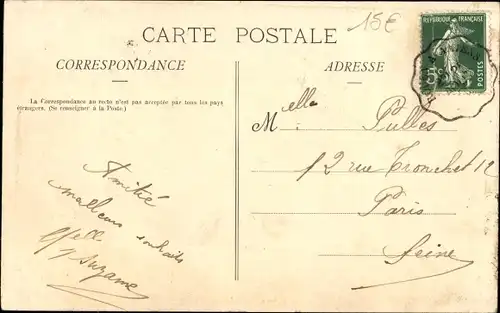 15€
CARTE POSTALE
CORRESPONDANCE
La Correspondance au recto n'est pas acceptée par tous les pays
étrangers. (Se renseigner à la Poste.)
Amitié
meilleurs souhaits
Suzanne
ADRESSE
REPUBLIQUE FRANÇAISE
5c
POSTES
Melle Pulles
12 rue Tronchet 12
Paris
Seine